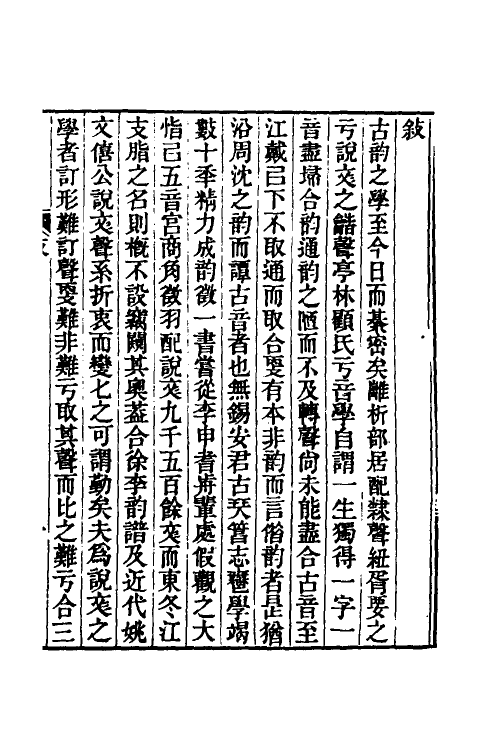 敍
古韵之學至今日而綦密矣離析部居配隸聲紐胥要之
亏說文之龤聲亭林顧氏亏音學自謂一生獨得一字一
音盡埽合韵通韵之陋而不及轉聲尙未能盡合古音至
江戴已下不取通而取合要有本非韵而言韵者是猶
沿周沈之韵而譚古音者也無錫安君古琴篤志雅學竭
數十年精力成韵徵一書嘗從李申耆辨輩處假觀之大
恉已五音宮商角徵羽配說文九千五百餘文而東冬江
支脂之名則槪不設竊闚其奧葢合徐李韵譜及近代姚
文僖公說文聲系折衷而變七之可謂勤矣夫爲說文之
學者訂形難訂聲要難非難亏取其聲而比之難亏合三